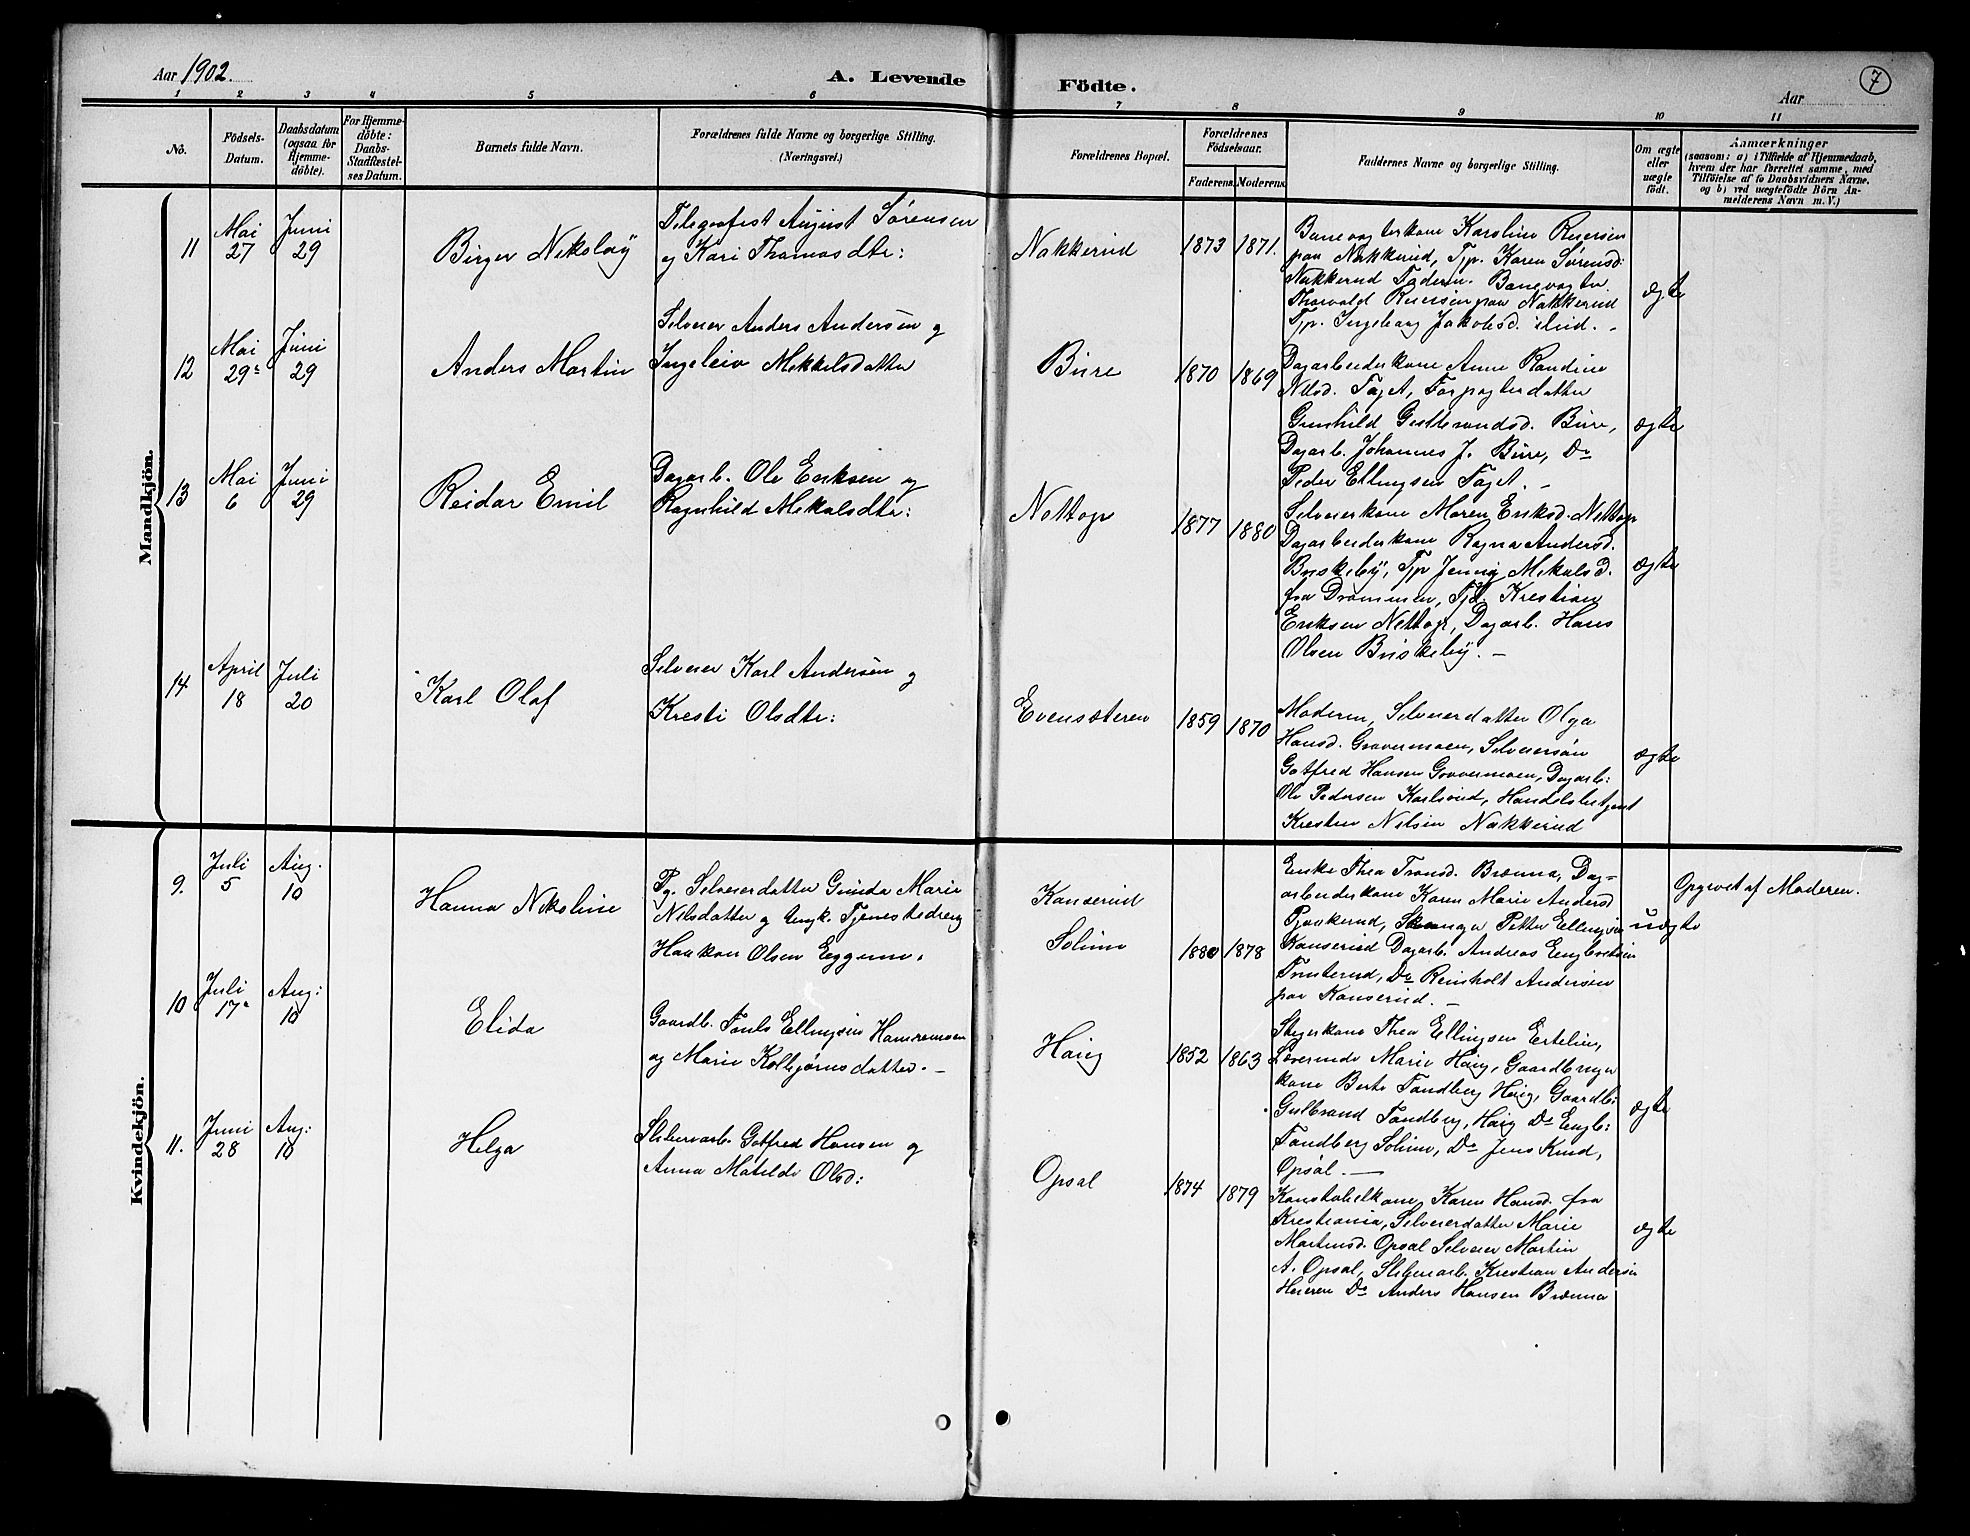 Aar 1902.
A. Levende
Födte.
7
Aar
1 2 3 4 5 6 7 8 9 10 11
Nô.
Födsels-
Datum.
Daabsdatum
(ogsaa for
Hjemme-
döbte).
For Hjemme-
döbte:
Daabs-
Stadfæstel-
ses Datum.
Barnets fulde Navn.
Forældrenes fulde Navne og borgerlige Stilling.
(Næringsvei.)
Forældrenes Bopæl.
Forældrenes
Födselsaar.
Faderens. Moderens.
Faddernes Navne og borgerlige Stilling.
Om ægte
eller
uægte
födt.
Anmærkninger
(saasom: a) i Tilfælde af Hjemmedaab,
hvem der har forrettet samme, med
Tilföielse af to Daabsvidners Navne,
og b) ved uægtefödte Börn An-
melderens Navn m.V.)
Mandkjön.
11
Mai
27
Juni
29
Birger Nikolay
Telegrafist August Sørensen
og Kari Thomasdtr:
Nakkerud
1873
1871.
Banevogterkone Karoline Reiersen
paa Nakkerud, Tjp. Karen Sørensd:
Nakkerud Faderen. Banevogter
Thorvald Reiersen paa Nakkerud
Tjp. Ingeborg Jakobsd. ibid. -
ægte
12
Mai
29
Juni
29
Anders Martin
Selveier Anders Andersen og
Ingeleiv Mekkelsdatter
Bure
1870
1869
Dagarbeiderkone Anne Randine
Nilsd. Faget, Forpagterdatter
Gunhild Bure,
Dagarb. Johannes J. Bure, Do
Peder Ellingsen Faget. -
ægte
13
Mai
6
Juni
29
Reidar Emil
Dagarb. Ole Eriksen og
Ragnhild Mekalsdtr:
Nottop
1877
1880
Selveierkone Maren Eriksd. Nettop
Dagarbeiderkone Ragna Andersd.
Briskeby, Tjp Jenny Mekalsd.
fra Drammen, Tjd. Krestian
Eriksen Nettop, Dagarb. Hans
Olsen Briskeby. -
ægte
14
April
18
Juli
20
Karl Olaf
Selveier Karl Andersen og
Kresti Olsdtr:
Evensæteren
1859
1870
Moderen, Selveierdatter Olga
Hansd. Gravermoen, Selveiersøn
Gotfred Hansen Gravermoen, Dagarb:
Ole Pedersen Karlsrud, Handelsbetjent
Kresten Nilsen Nakkerud
ægte
Kvindekjön.
9.
Juli
5
Aug.
10
Hanna Nikoline
Pg. Selveierdatter Gunda Marie
Nilsdatter og Ungk. Tjenestedreng
Haakon Olsen Eggum.
Kanserud
Solum
1880
1878
Enke Thea Tronsd. Brænna, Dag-
arbeiderkone Karen Marie Andersd
Pjaakerud, Petter Ellingsen
Kanserud Dagarb. Andreas Englbretsen
Trulerud, Do Reinholt Andersen
paa Kanserud. -
uægte
Opgivet af Moderen.
10
Juli
17
Aug:
10
Elida
Gaardb. Ellingsen Hamremoen
og Marie Kolbjørnsdatter. -
Haug
1852
1863
Stigerkone Thea Ellingsen Ertelien,
Lærerinde Marie Haug, Gaardbruger
kone Berte Tandberg Haug, Gaardb:
Gulbrand Tandberg, Haug Do Englb:
Tandberg Solum, Do Jens Knud,
Opsal. -
ægte
11.
Juni
28
Aug:
10
Helga
Sliberarb. Gotfred Hansen og
Anna Matilde Olsd:
Opsal
1874
1879
Konstabelkone Karen Hansd. fra
Krestiania, Selveierdatter Marie
Martinsd. Opsal Selveier Martin
A. Opsal, Sliberarb. Krestian Andersen
Heieren Do Anders Hansen Brænna
ægte